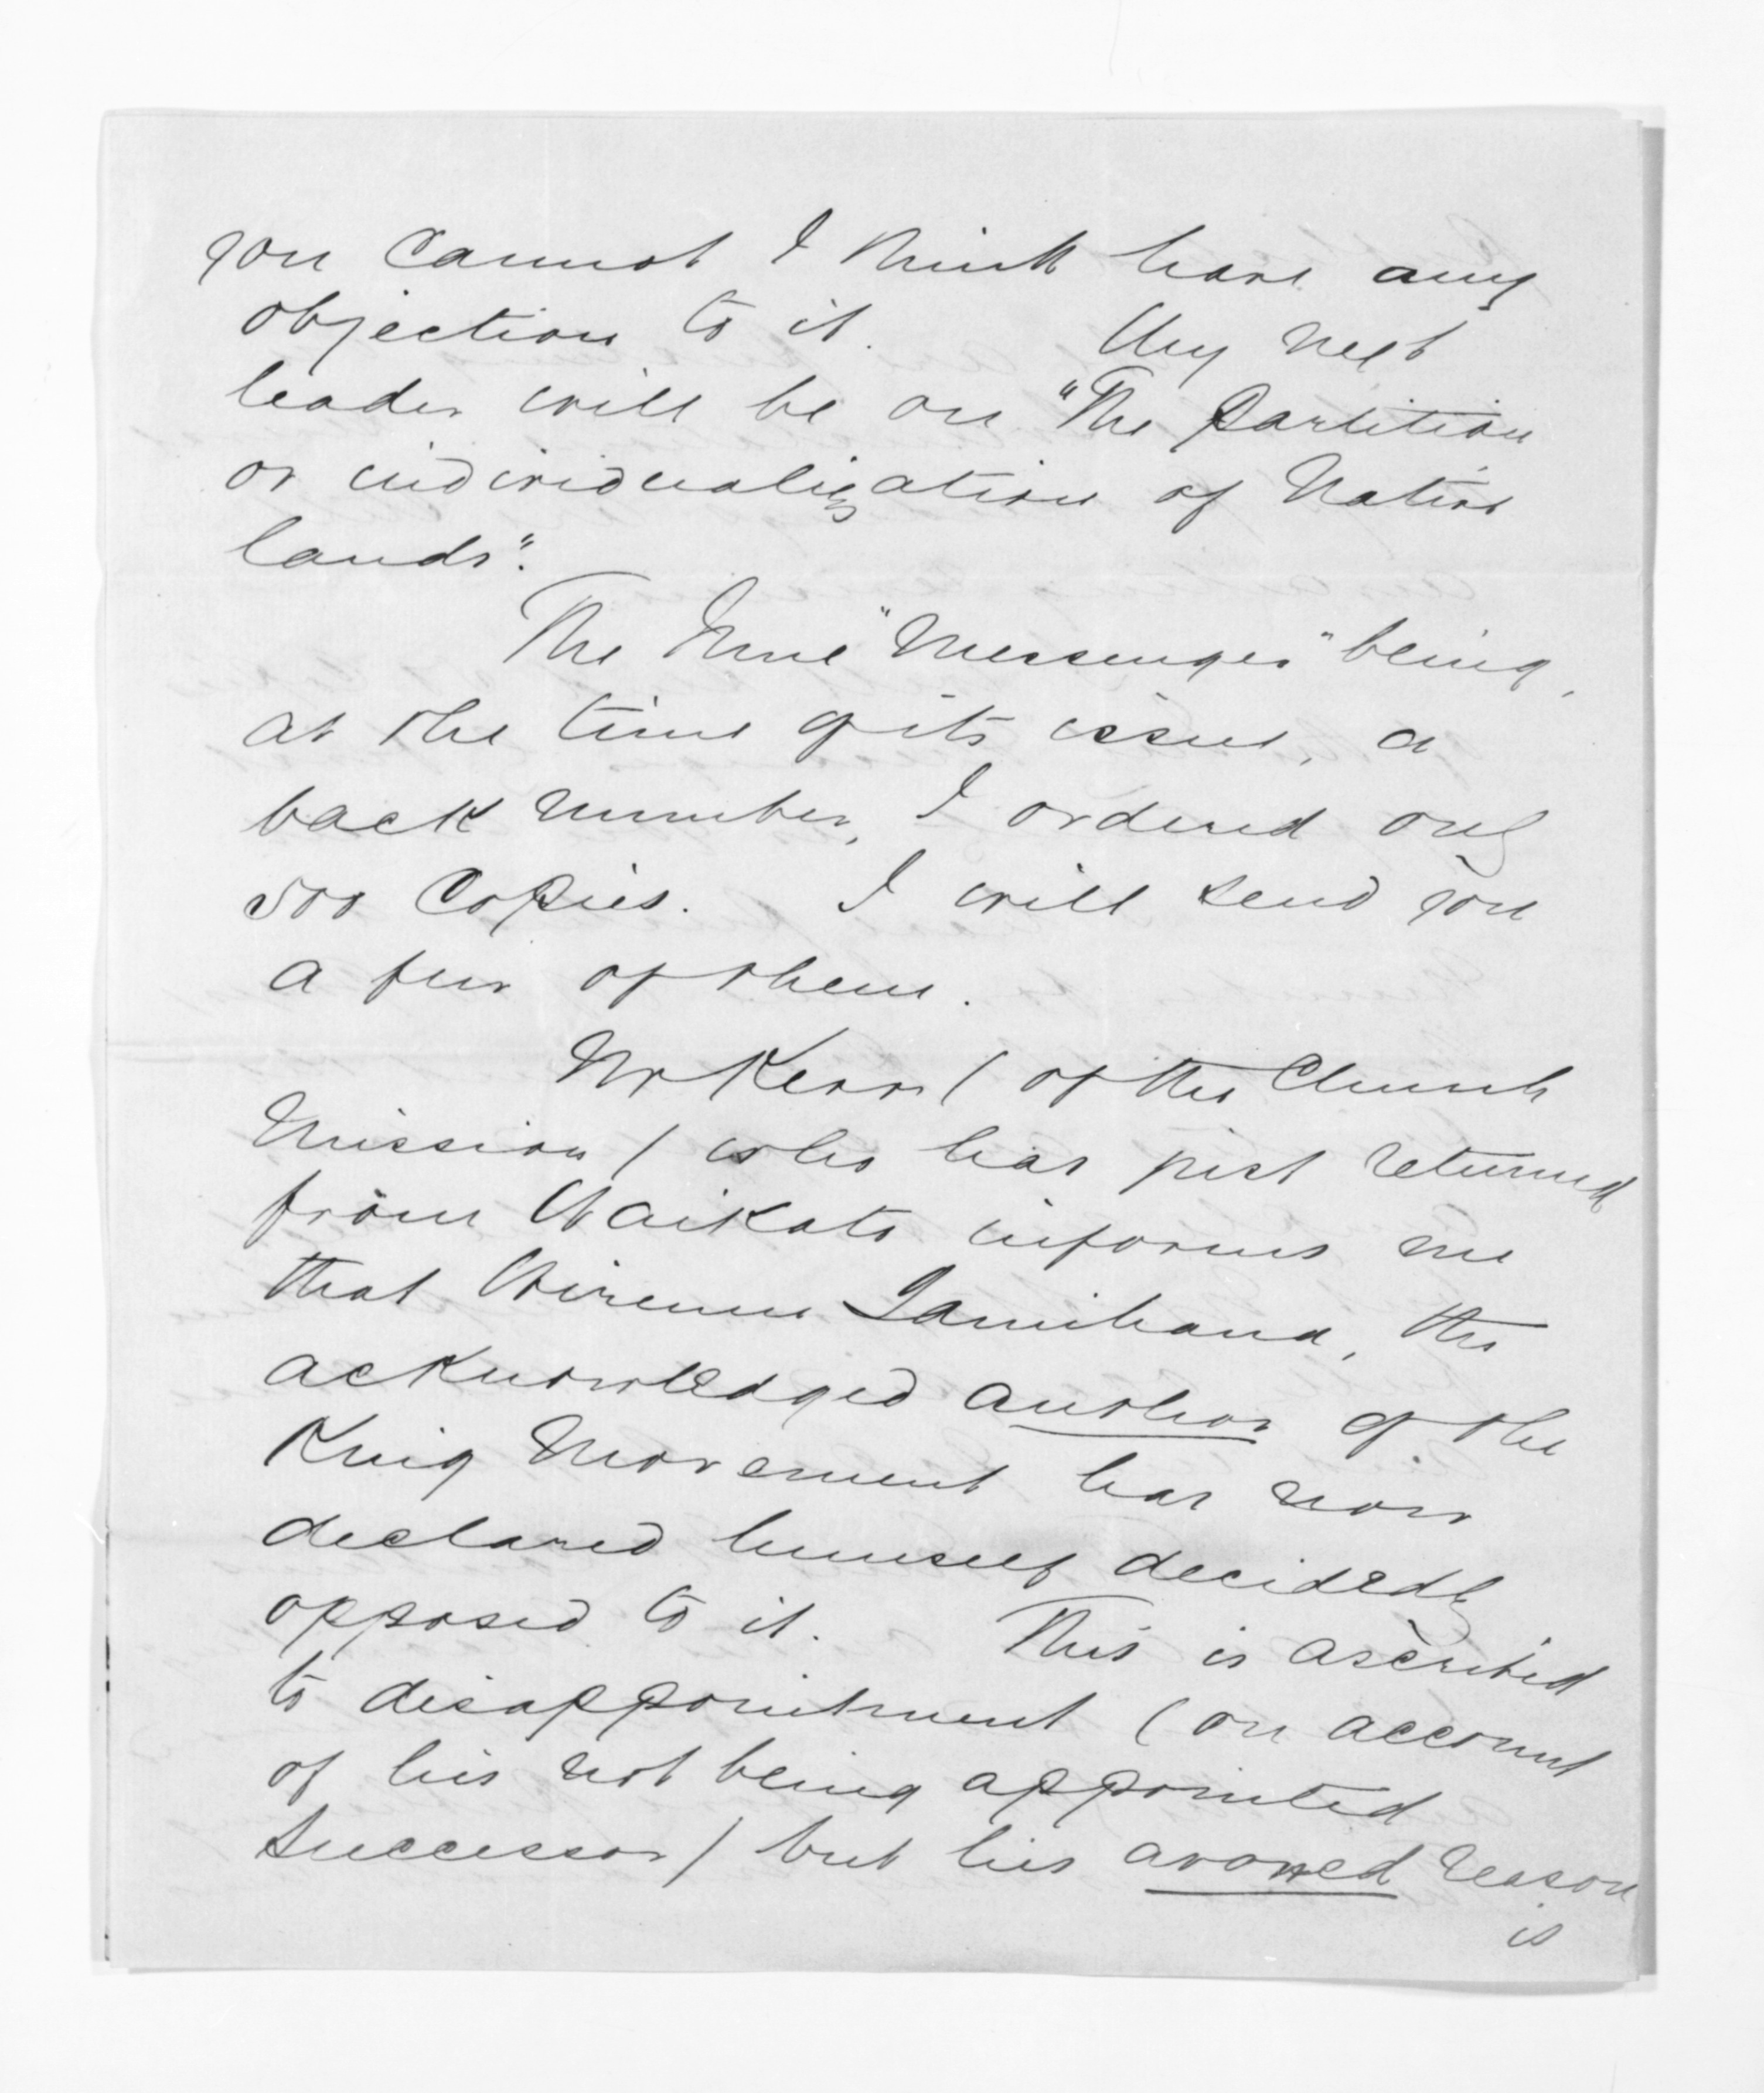 you cannot I think have any
objection to it. My next
leader will be on "The Partition
or individualization of Native
lands".
The June "Messenger" being,
at the time of its issue, a
back number, I ordered only
500 Copies. I will send you
a few of them.
Mr Kerr (of the Church
Mission) who has just returned
from Waikato informs me
that Wiremu Tamihana, the
acknowledged author of the
King Movement has now
declared himself decidedly
opposed to it. This is ascribed
to disappointment (on account
of his not being appointed
Successor) but his avowed reason
is